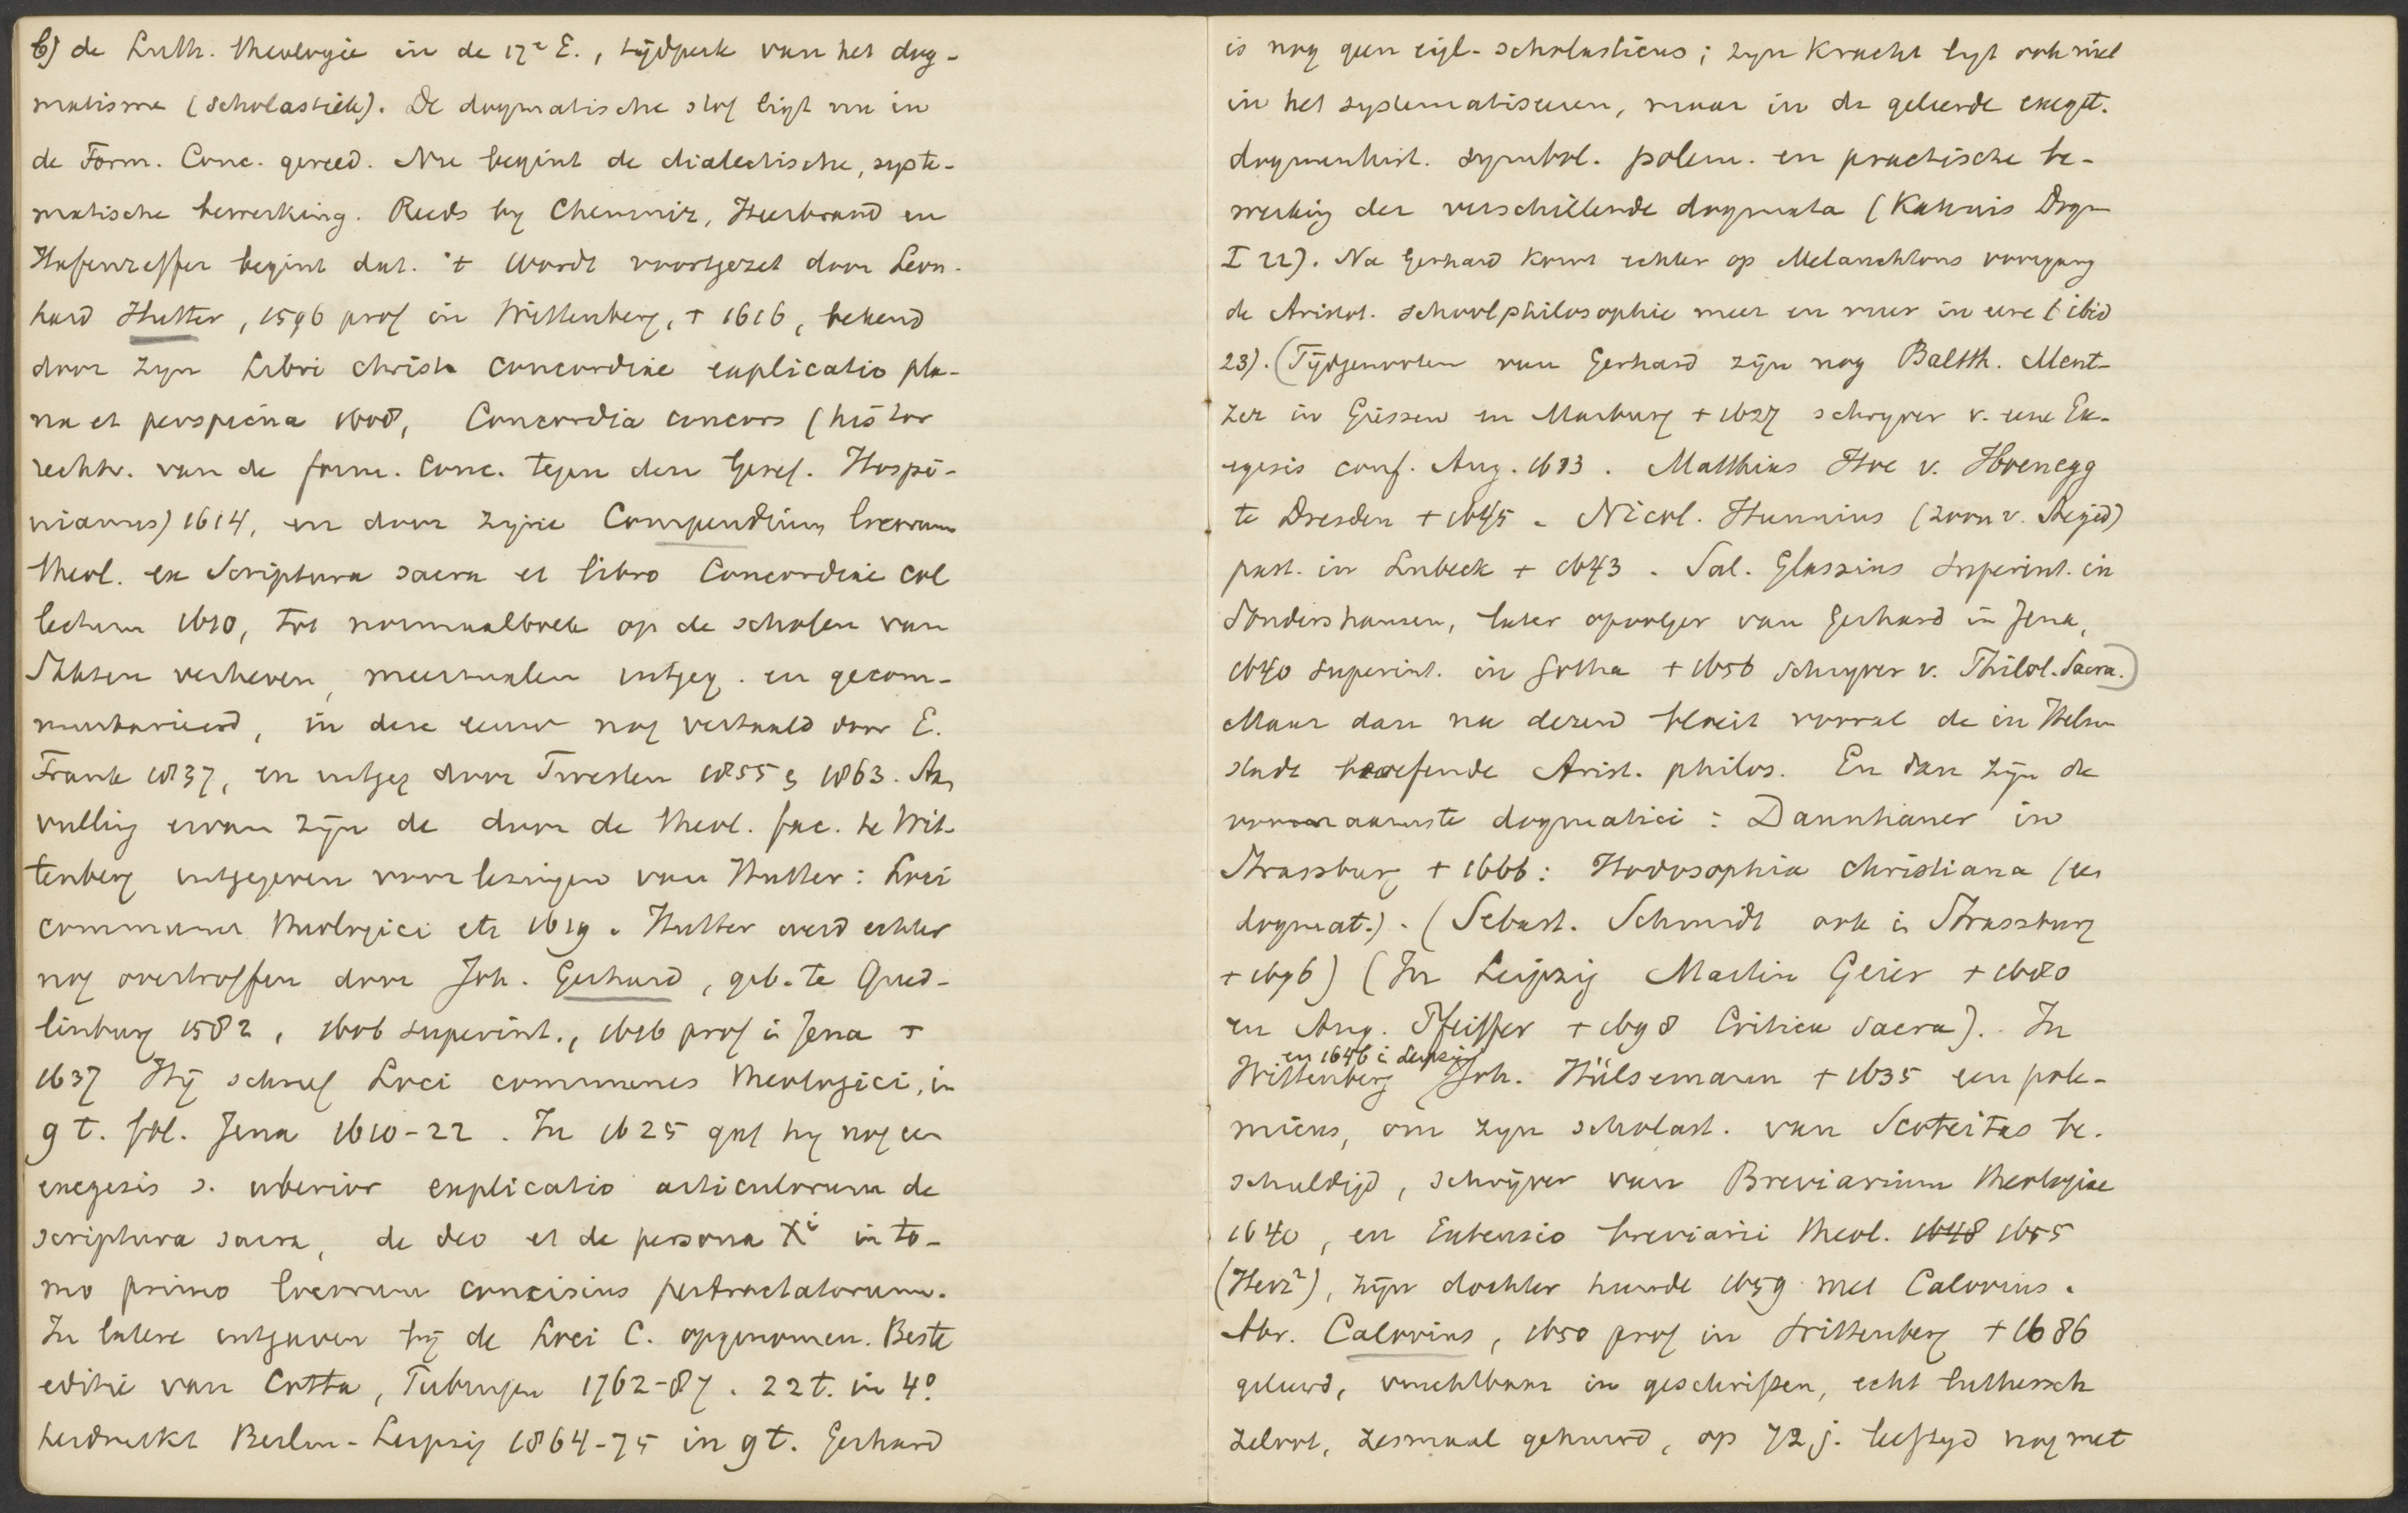 b) de Luth. theologie in de 17e E., tijdperk van het dog-
matisme (scholastiek). De dogmatische stof ligt nu in
de Form. Conc. gereed. Nu begint de dialectische, syste-
matische bewerking. Reeds by Chemniz, Heerbrand en
Hafenreffer begint dat. 't Wordt voortgezet door Leon-
hard Hutter, 1596 prof in Wittenberg, + 1616, bekend
door zyn Libri christ. concordiae explicatio pla-
na et perspicua 1608, Concordia concors (histor
rechtv. van de form. conc. tegen den Geref. Hospi-
nianus) 1614, en door zijne Compendium locorum
theol. ex Scriptura sacra et libro Concordiae col
lectum 1610, tot normaalboek op de scholen van
Saksen verheven, meermalen uitgeg. en gecom-
mentarieerd, in deze eeuw nog vertaald door E.
Frank 1837, en uitgeg door Twesten 1855 & 1863. Aan
vulling ervan zijn de door de theol. fac. te Wit-
tenberg uitgegeven voorlezingen van Hutter: Loci
communes theologici etc 1619. Hutter werd echter
nog overtroffen door Joh. Gerhard, geb. te Qued-
linburg 1582, 1606 superint., 1616 prof i Jena +
1637 Hij schreef Loci communes theologici, in
9 t. fol. Jena 1610-22. In 1625 gaf hy nog een
exegesis s. uberior explicatio articulorum de
scriptura sacra, de deo et de persona Xi in to-
mo primo locorum concisius pertractatorum.
In latere uitgaven bij de Loci C. opgenomen. Beste
editie van Cotta, Tubingen 1762-87. 22 t. in 4o.
herdrukt Berlin-Leipzig 1864-75 in 9 t. Gerhard
is nog geen eigl. scholasticus; zyn kracht ligt ook niet
in het systematiseeren, maar in de geleerde exeget.
dogmenhist. symbol. polem. en practische be-
werking der verschillende dogmata (Kahnis Dogm
I 22). Na Gerhard komt echter op Melanchtons voorgang
de Aristot. schoolphilosophie meer en meer in eere (ibid
23). (Tijdgenooten van Gerhard zijn nog Balth. Ment-
zer in Giessen en Marburg + 1627 schryver v. eene Ex-
egesis conf. Aug. 1613. Matthias Hoe v. Hoenegg
te Dresden + 1645. Nicol. Hunnius (zoon v. Aegid)
past. in Lubeck + 1643. Sal. Glassius superint. in
Sondershausen, later opvolger van Gerhard in Jena,
1640 superint. in Gotha + 1656 schryver v. Philol. Sacra.)
Maar dan na dezen bloeit vooral de in Helm
stadt beoefende Arist. philos. En dan zijn de
voornaamste dogmatici: Dannhauer in
Strassburg + 1666: Hodosophia christiana (een
dogmat.). (Sebast. Schmidt ook in Strassburg
+ 1696) (In Leipzig Martin Geier + 1680
en Aug. Pfeiffer + 1698 Critica Sacra). In
en 1646 i Leipzig
Wittenberg Joh. Hülsemann + 1635 een pole-
micus, om zyn scholast. van Scoteitas be-
schuldigd, schrijver van Breviarium theologiae
1640, en Extensio breviarii theol. 1648 1655
(Herz2), zijn dochter huwde 1659 met Calovius.
Abr. Calovius, 1650 prof in Wittenberg + 1686
geleerd, vruchtbaar in geschriften, echt luthersch
zeloot, zesmaal gehuwd, op 72 j. leeftyd nog met